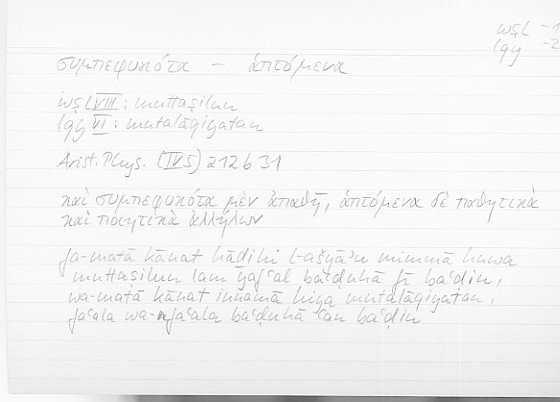 wṣl –1
lqy –2
συμπεφυκότα – ἁπτόμενα
wṣl VIII : muttaṣilun
lqy VI : mutalāqiyatan
Arist. Phys. (IV 5) 212 b 31
καὶ συμπεφυκότα μὲν ἀπαθῆ, ἁπτόμενα δὲ παθητικὰ
καὶ ποιητικὰ ἀλλήλων
fa-matā kānat hādihi l-ašyāʾu mimmā huwa
muttaṣilun lam yafʿal baʿḍuhā fī baʿḍin,
wa-matā kānat innamā hiya mutalāqiyatan,
faʿala wa-nfaʿala baʿḍuhā ʿan baʿḍin